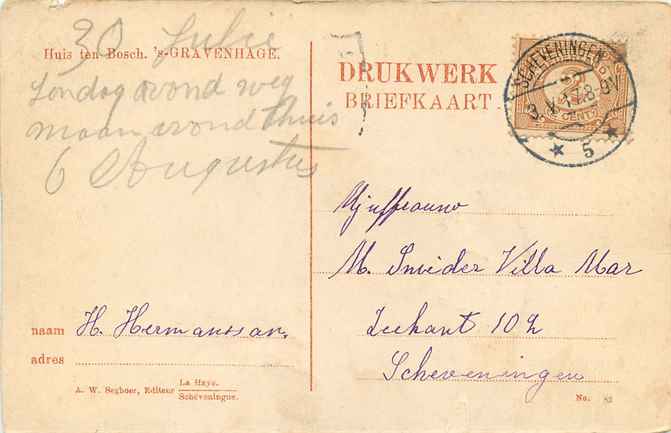 30 Julie
Huis ten Bosch. 's-GRAVENHAGE.
Zondag avond weg
maan avond thuis
6 Augustus
DRUKWERK
BRIEFKAART.
SCHEVENINGEN
5
CENT
Mejuffrouw
M. Snieder Villa Mar
Zeekant 102
Scheveningen
naam H. Hermanssen.
adres
A. W. Segboer, Editeur La Haye.
Schéveningue.
No. 83